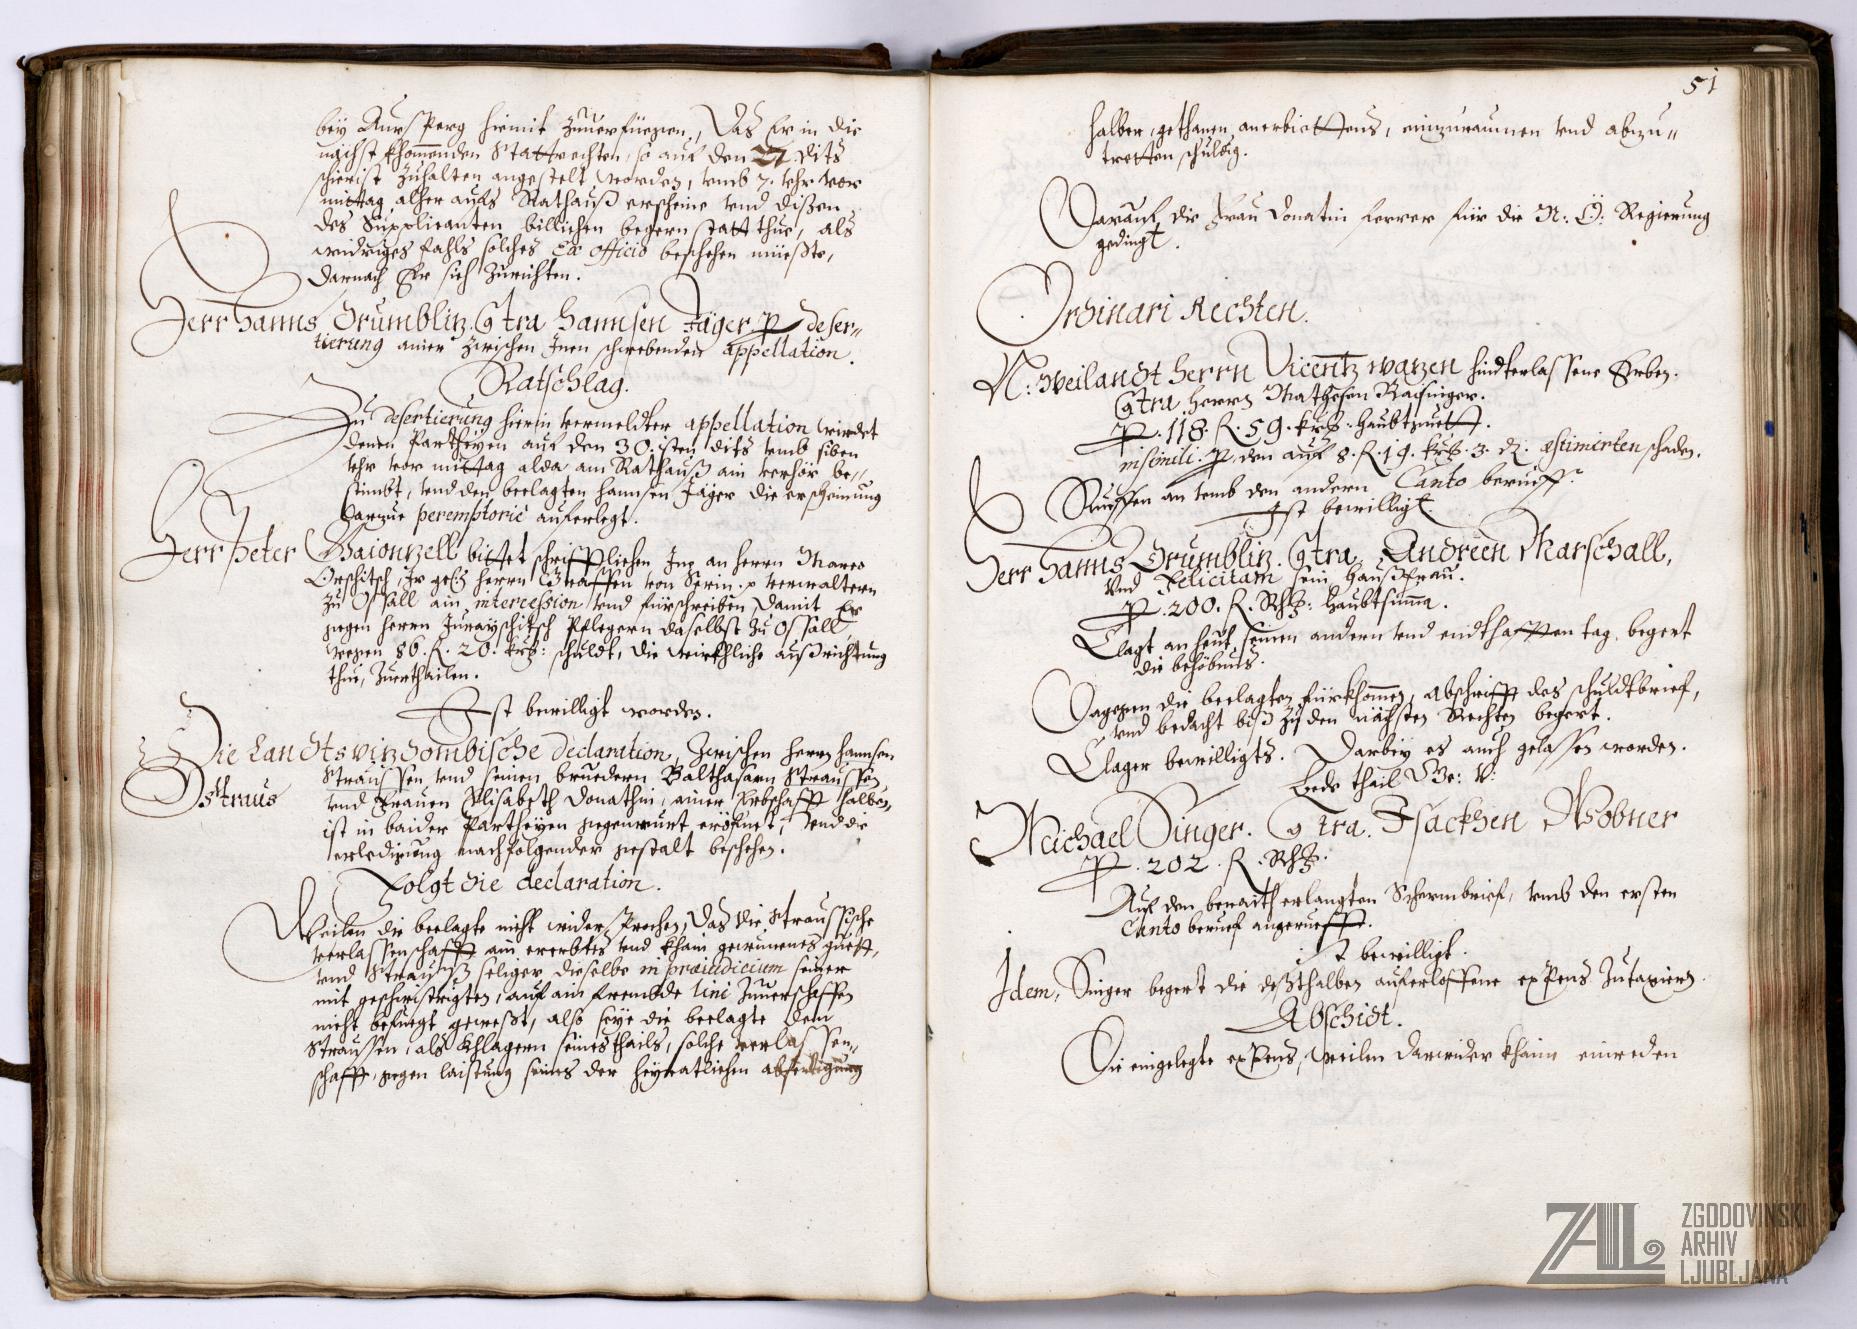 bey Aursperg hiemit zuuerfüegen, Das Er in die
nächst khommenden Stattrechten, so auf den 27. dits
schierist zuhalten angestelt worden, vmb 7. vhr vor
mittag alher aufs Rathauß erscheine vnd dißem
des Supplicanten billichen begern statt thue, als
widriges fahls solches Ex officio beschehen müeßte,
darnach Er sich zurichten.
Herr Hanns Grumbliz Contra Hannsen Jäger p deser-
tierung ainer zwischen Inen schwebenden appellation.
Ratschlag.
Zu desertierung hierin vermeldter appellation wirdet
denen Partheyen auf den 30.isten dits vmb siben
vhr vor mittag alda am Rathauß ain verhör be-
stimbt, vnd den beclagten Hannsen Jäger die erscheinung
darzue peremptorie auferlegt.
Herr Peter bittet schrifftlichen Ine an herrn Marco
herrn Graffen von Serin p verwaltern
zu Ossall ain intercession vnd fürschreiben, damit Er
gegen herrn Juraÿschitsch Pflegern daselbst zu Ossall,
wegen 86. R. 20. krz: schuldt, die würkhliche außrichtung
thue, zuerthailen.
Ist bewilligt worden.
Die Landtsvizdombische declaration, zwischen herrn Hannsen
Straussen vnd seinen bruedern Balthasarn Straussen
Straus
vnd Frauen Elisabeth Donathin, ainer Erbschafft halben,
ist in baider Partheyen gegenwurt eröffnet, vnd die
erledigung nachfolgender gestalt beschehen.
Folgt die declaration.
Weilen die beclagte nicht widersprochen, das die Straussische
verlassenschafft ain ererbtes vnd khain gewunenes guett,
vnd Strauß seliger dieselbe in praeiudicium seiner
mit geschwistrigten, auf ain frembde lini zuuerschaffen
nicht befuegt gewest, also seye die beclagte dem
Straussen, als Khlagern seines thails, solche verlassen-
schafft, gegen laistung seines der heyratlichen abfertigung
51
halber, gethanen anerbiettens, einzuraumen vnd abzu-
tretten schuldig.
Darauf die Frau Donatin ferrer für die N: Ö: Regierung
gedingt.
Ordinari Rechten.
N: Weilandt Herrn Vicentz Warzen hindterlassene Erben.
Contra Herrn Mathesen Rasinger.
p. 118. R. 59. krz: Haubtguett.
in simili p den auf 8. R. 19. krz. 3. d. aestimirten schaden.
Rueffen an vmb den andern Canto berueff.
Ist bewilligt.
Herr Hanns Grumbliz Contra Andreen Marschall,
Vnd Felicitam sein Haußfrau.
p. 200. R. Haubtsumma.
Clagt an heut seinen andern vnd endthafften tag, begert
die behöbnus.
Dagegen die beclagten fürkhommen, abschrifft des schuldtbrief,
vnd bedacht biß zu den nächsten Rechten begert.
Clager bewilligts. Darbey es auch gelassen worden.
Bede thail
Michael Singer. Contra Isackhen
p. 202. R.
Auf den beraith erlangten Schermbrief, vmb den ersten
Canto berueff angerueff.
ist bewilligt.
Idem, Singer begert die deßthalben auferloffene expens zutaxiern.
Abschidt.
Die eingelegte expens, weilen darwider khain einreden
ZAL
ZGODOVINSKI
ARHIV
LJUBLJANA